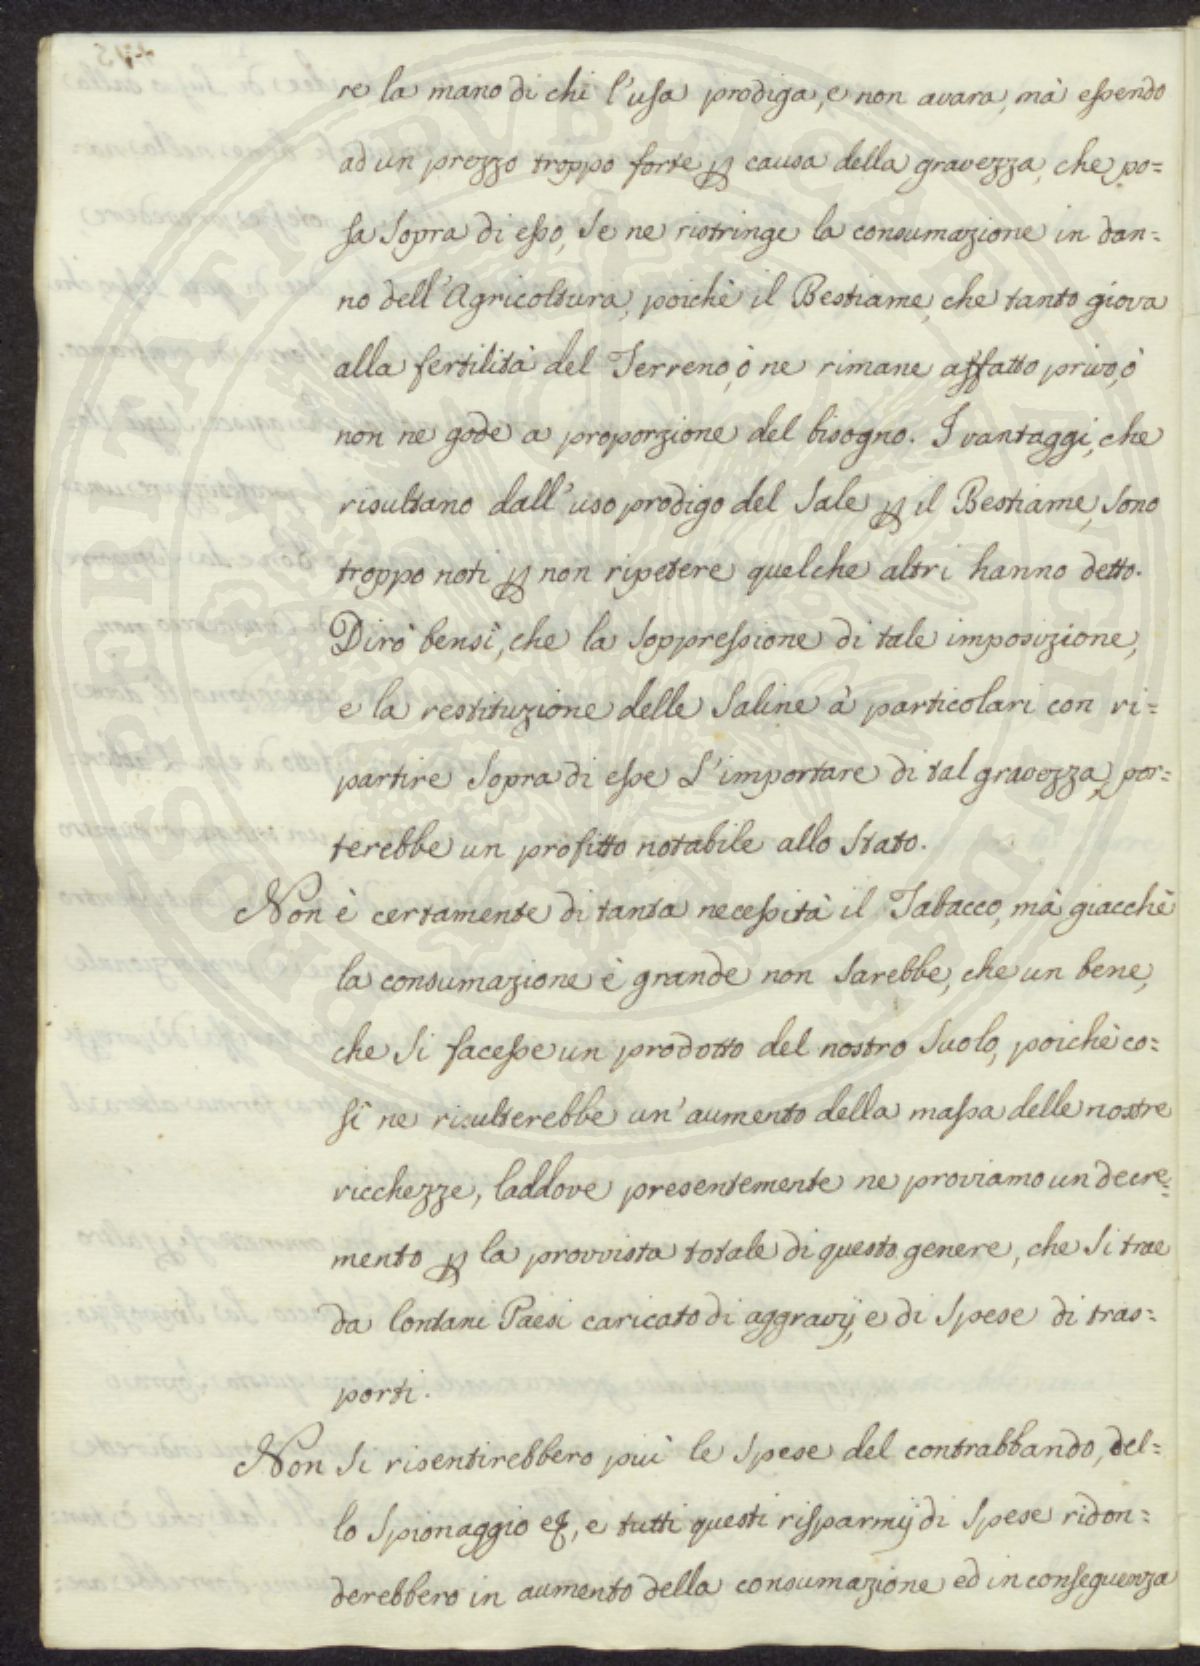 re la mano di chi l'usa prodiga, e non avara, mà essendo
ad un prezzo troppo forte ꝑ causa della gravezza, che po=
sa sopra di esso, se ne ristringe la consumazione in dan=
no dell'Agricoltura, poichè il Bestiame, che tanto giova
alla fertilità del Terreno, ò ne rimane affatto privo, ò
non ne gode a proporzione del bisogno. I vantaggi, che
risultano dall'uso prodigo del Sale ꝑ il Bestiame, sono
troppo noti ꝑ non ripetere quelche altri hanno detto.
Dirò bensì, che la soppressione di tale imposizione,
e la restituzione delle Saline à particolari con ri=
partire sopra di esse L'importare di tal gravezza, por=
terebbe un profitto notabile allo Stato.
Non è certamente di tanta necessità il Tabacco, mà giacchè
la consumazione è grande non sarebbe, che un bene,
che si facesse un prodotto del nostro Suolo, poichè co=
sì ne risulterebbe un'aumento della massa delle nostre
ricchezze, laddove presentemente ne proviamo un decre=
mento ꝑ la provvista totale di questo genere, che si trae
da lontani Paesi caricato di aggravij, e di Spese di tras=
porti.
Non si risentirebbero più le Spese del contrabbando, del=
lo Spionaggio &c, e tutti questi risparmij di Spese ridon=
derebbero in aumento della consumazione ed in conseguenza